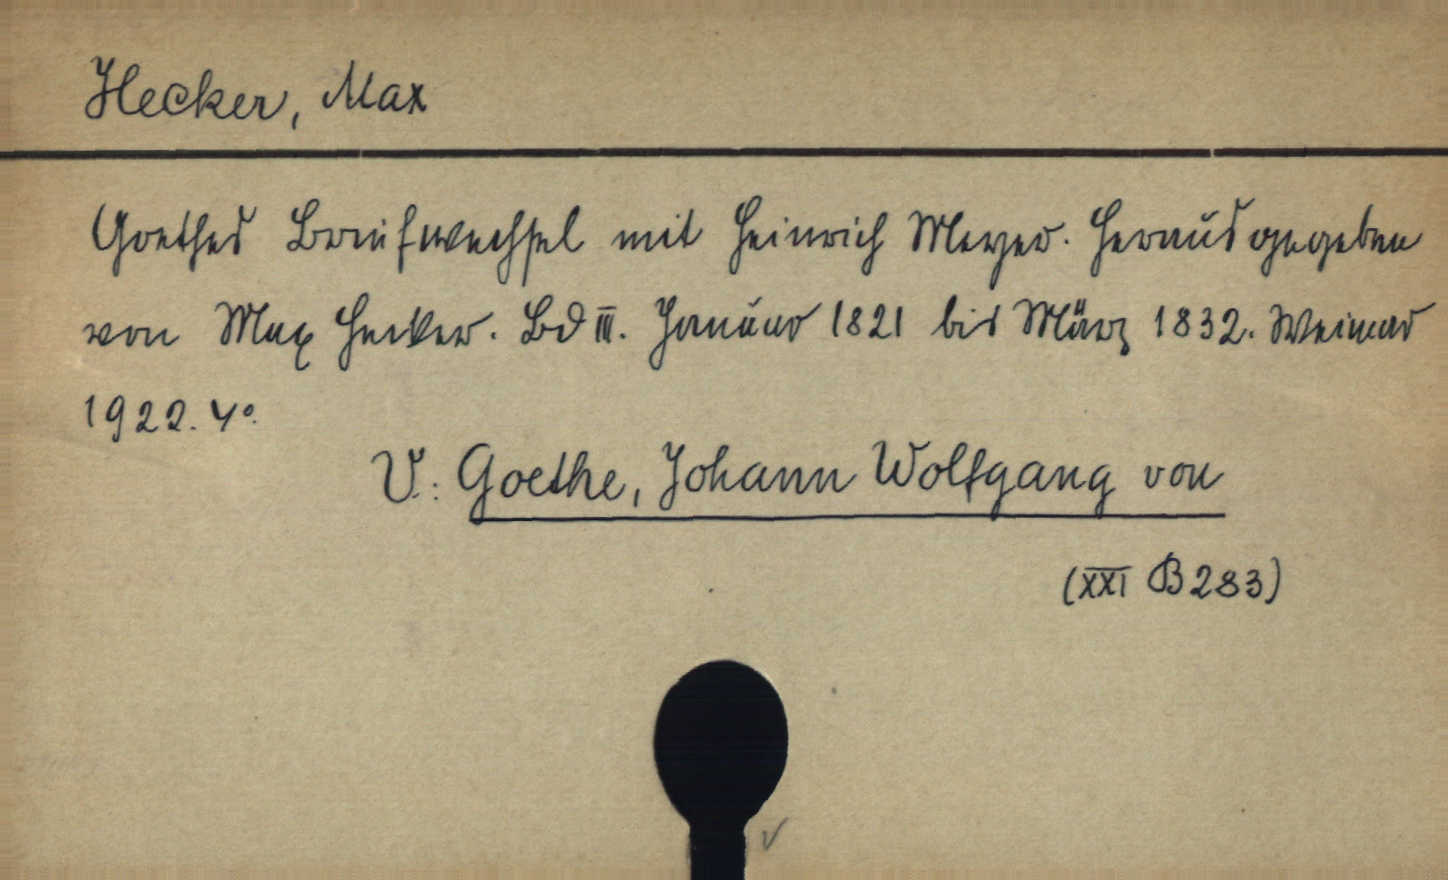 Hecker, Max
Goethes Briefwechsel mit Heinrich Meyer. Herausgegeben
von Max Hecker. Bd III. Januar 1821 bis März 1832. Weimar
1922. 4°.
V.: Goethe, Johann Wolfgang von
(XXI B 283)